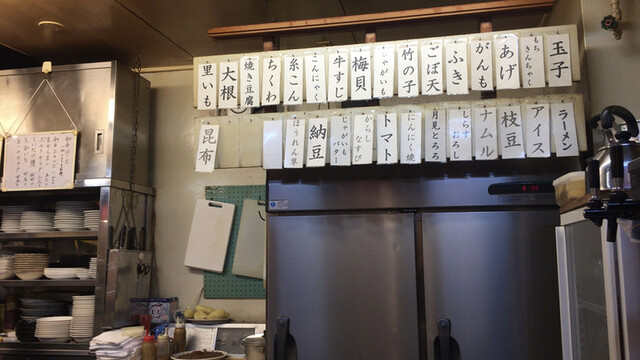 玉子
もちきんちゃく
あげ
がんも
ふき
ごぼ天
竹の子
じゃがいも
梅貝
牛すじ
こんにゃく
糸こん
ちくわ
焼き豆腐
大根
里いも
ラーメン
アイス
枝豆
ナムル
しらすおろし
月見とろろ
にんにく焼
トマト
からしなすび
じゃがいもバター
納豆
ほうれん草
昆布